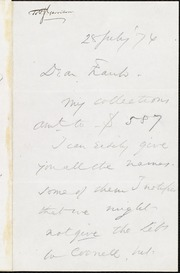 28 July 74
Dear Frank.
My collections
amt. to $587
I can easily give
you all the names.
Some of them I hope
that we might
not give the lets
to Cornell, but